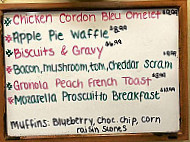 Chicken Cordon Bleu Omelet
Apple Pie Waffle
Biscuits & Gravy
Bacon, mushroom, tom, cheddar Scram
Granola Peach French Toast
Mozarella Proscuitto Breakfast
muffins: Blueberry, choc. chip, corn
raisin scones